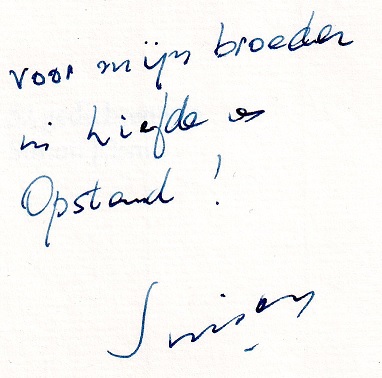 voor mijn broeder
in Liefde en
Opstand!